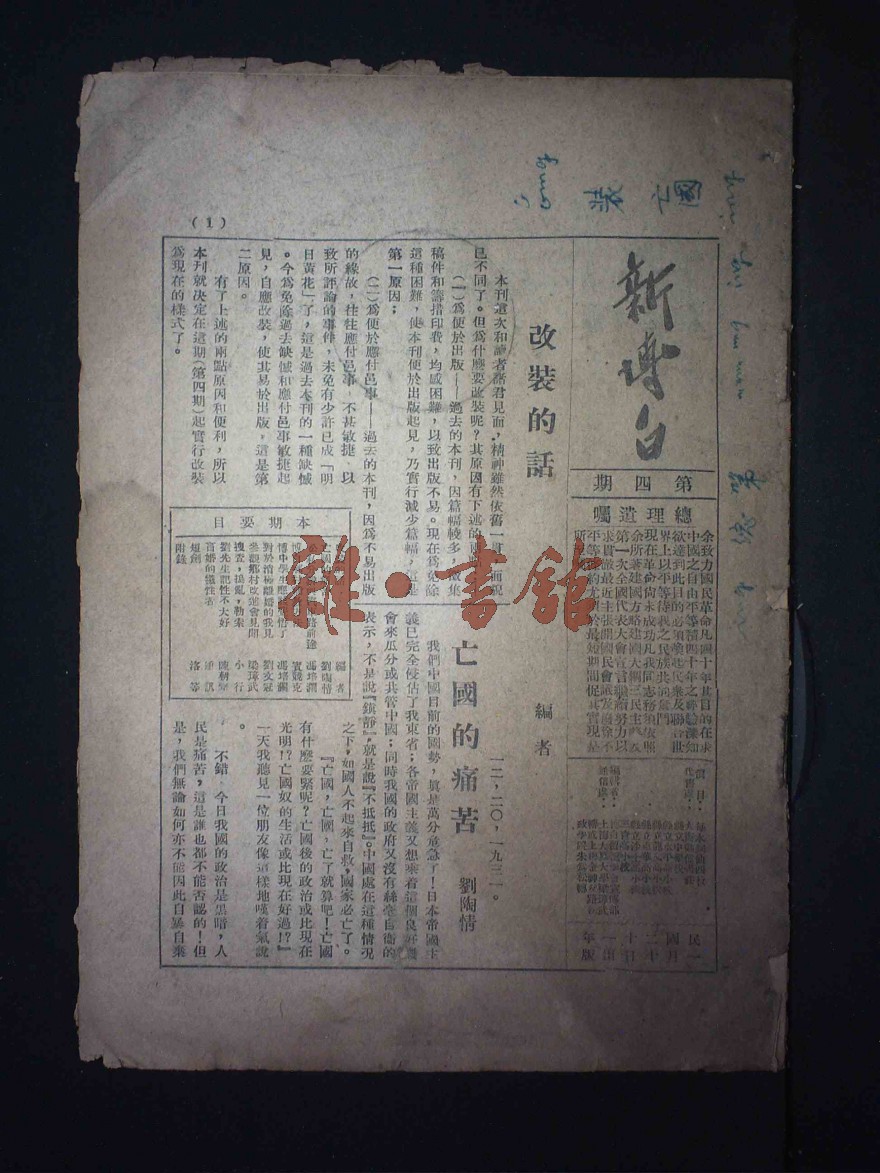 新博白
第四期
總理遺囑
余致力國民革命凡四十年其目的在求
中國之自由平等積四十年之經驗深知
欲達到此目的必須喚起民衆及聯合世
界上以平等待我之民族共同奮鬥
現在革命尚未成功凡我同志務須依照
余所著建國方略建國大綱三民主義及
第一次全國代表大會宣言繼續努力以
求貫徹最近主張開國民會議及廢除不
平等條約尤須於最短期間促其實現是
所
(1)
改裝的話
編者
本刊這次和讀者諸君見面,精神雖然依舊一貫,而貌
已不同了。但爲什麼要改裝呢?其原因有下述的兩點
(一)爲便於出版——過去的本刊,因篇幅較多,徵集
稿件和籌措印費,均感困難,以致出版不易。現在爲免除
這種困難,使本刊便於出版起見,乃實行減少篇幅,這是
第一原因;
(二)爲便於應付邑事——過去的本刊,因爲不易出版
的緣故,往往應付邑事,不甚敏捷,以
致所評論的事件,未免有少許已成「明
日黃花」了,這是過去本刊的一種缺憾
。今爲免除過去缺憾和應付邑事敏捷起
見,自應改裝,使其易於出版。這是第
二原因。
有了上述的兩點原因和便利,所以
本刊就決定在這期(第四期)起實行改裝
爲現在的樣式了。
一二,二〇,一九三一。
本期要目
編者
劉陶情
馮培瀾
劉文冠
梁璋武
小行
對於濱梅離婚的我見
參觀鄉村改進會見聞
搜查,搗亂,勒索
劉先生記性不大好
離婚的犧牲者
短劍
附錄
洛等
亡國的痛苦
劉陶情
我們中國目前的國勢,真是萬分危急了!日本帝國主
義已完全侵佔了我東省;各帝國主義又想乘着這個良好機
會來瓜分或共管中國;同時我國的政府又沒有絲毫自衛的
表示,不是說『鎮靜』,就是說『不抵抵』。中國處在這種情況
之下,如國人不起來自救,國家必亡了。
『亡國,亡國,亡了就算吧!亡國
有什麼要緊呢?亡國後的政治或比現在
光明!?亡國奴的生活或比現在好過!?』
一天我聽見一位朋友像這樣地嘆着氣說
。
不錯,今日我國的政治是黑暗,人
民是痛苦,這是誰也都不能否認的!但
是,我們無論如何亦不能因此自暴自棄
雜·書館